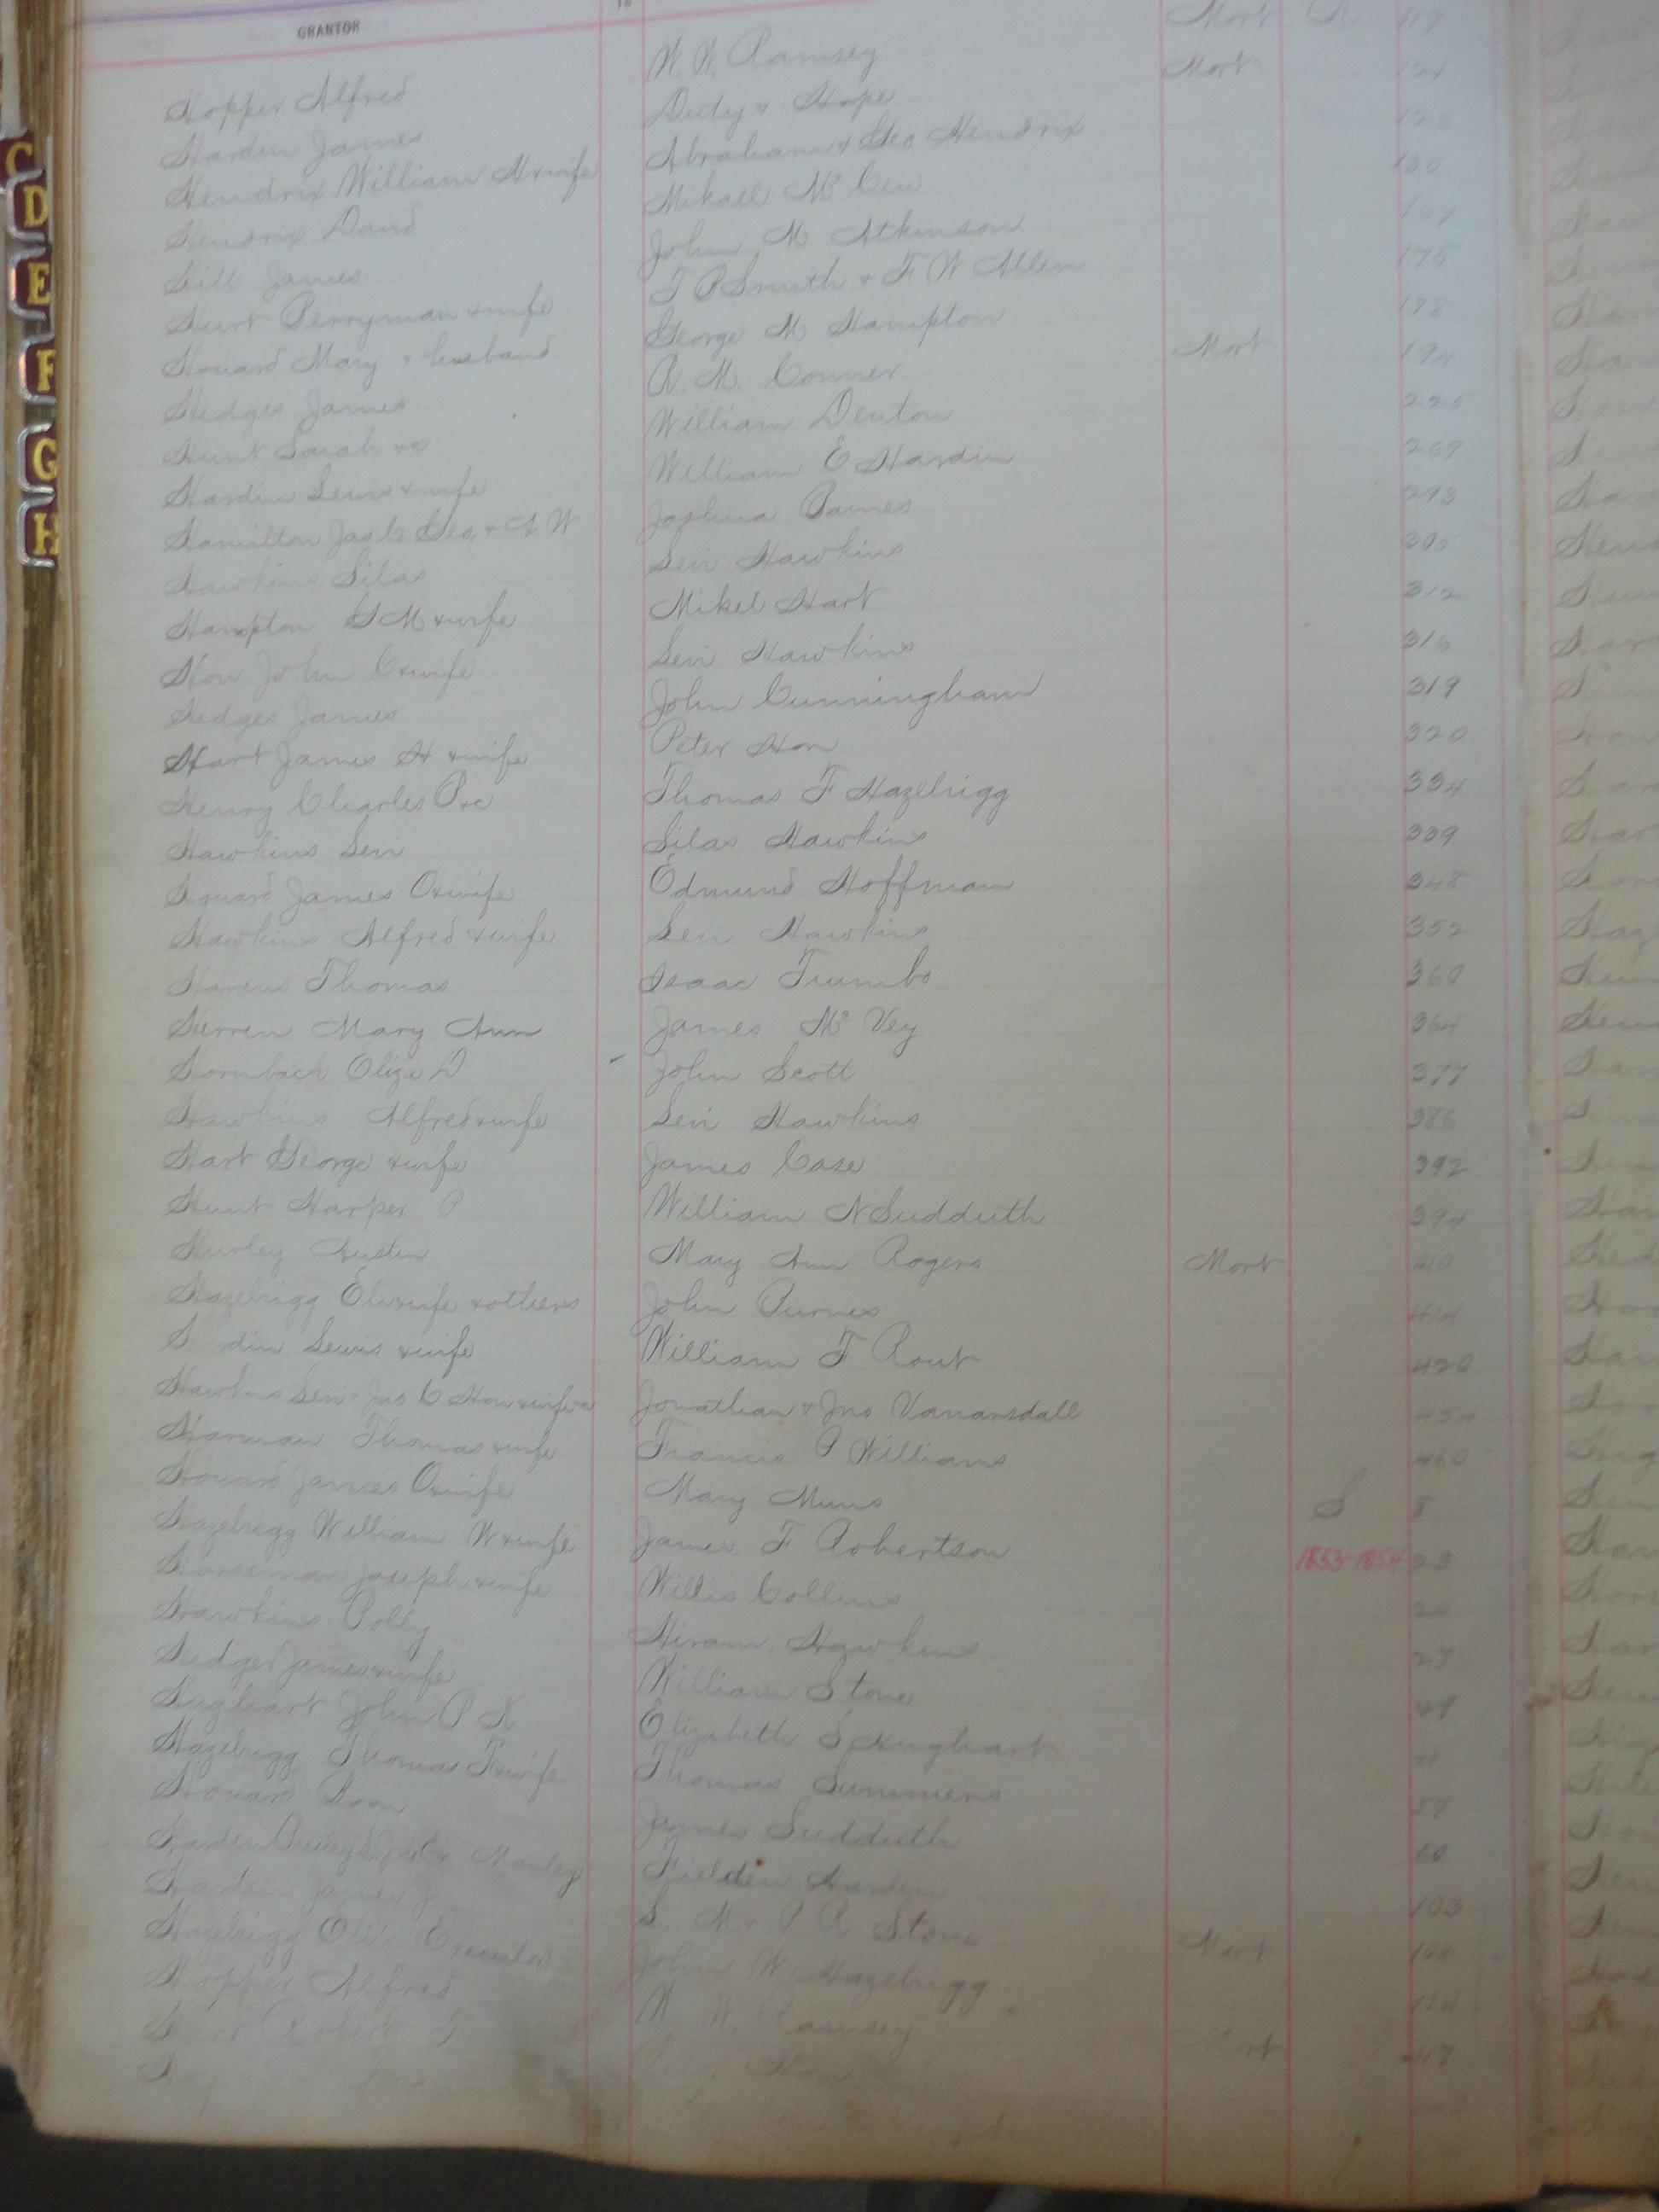 C
D
E
F
G
H
GRANTOR TO
Hopper Alfred W. W. Ramsey Mort R 117
Harden James Duty & Hope Mort 121
Hendrix William H & wife Abraham & Geo Hendrix 126
Hendrix David Mikael Mc 130
Hill James John M Atkinson 161
Hurt Perryman & wife T P Smith & F W Allen 175
Howard Mary & husband George M Hampton 178
Hedges James A. M. Conner Mort 194
Hunt Sarah &c William Denton 225
Hardin Lewis & wife William E Hardin 269
Hamilton Jas C Geo. & A W Joshua Barnes 293
Hawkins Silas Levi Hawkins 305
Hampton G M & wife Mikel Hart 312
Hon John C & wife Levi Hawkins 316
Hedges James John Cunningham 319
Hart James H & wife Peter Hon 320
Henry Charles P &c Thomas F Hazelrigg 334
Hawkins Levi Silas Hawkins 339
Howard James O & wife Edmund Hoffman 348
Hawkins Alfred & wife Levi Hawkins 352
Havens Thomas Isaac Trumbo 360
Herren Mary Ann James Mc Vey 364
Hornback Eliza D John Scott 377
Hawkins Alfred & wife Levi Hawkins 386
Hart George & wife James Case 392
Hunt Harper P William N Sudduth 394
Hurley Austin Mary Ann Rogers Mort 410
Hazelrigg Eli & wife & others John Burnes 414
H rdin Lewis & wife William F Rout 420
Hawkins Levi & Jno C Hon & wife &c Jonathan & Jno Vanarsdall 454
Harman Thomas & wife Francis P Williams 460
Howard James O & wife Mary Muns S 8
Hazelrigg William W & wife James F Robertson 1853-1854 23
Horseman Joseph & wife Willis Collins 24
Hawkins Polly Hiram Hawkins 27
Hedges James & wife William Stone 49
Hughart John P K Elizabeth S Hughart
Hazelrigg Thomas F & wife Thomas Summers 57
Howard Boon James Sudduth 60
Harden Mauley Fielden Harden 103
Harden James J S. M & P R Stone Mort 108
Hazelrigg Eli's Executor John W Hazelrigg 114
Hopper Alfred W. W. Ramsey Mort 117
Robert